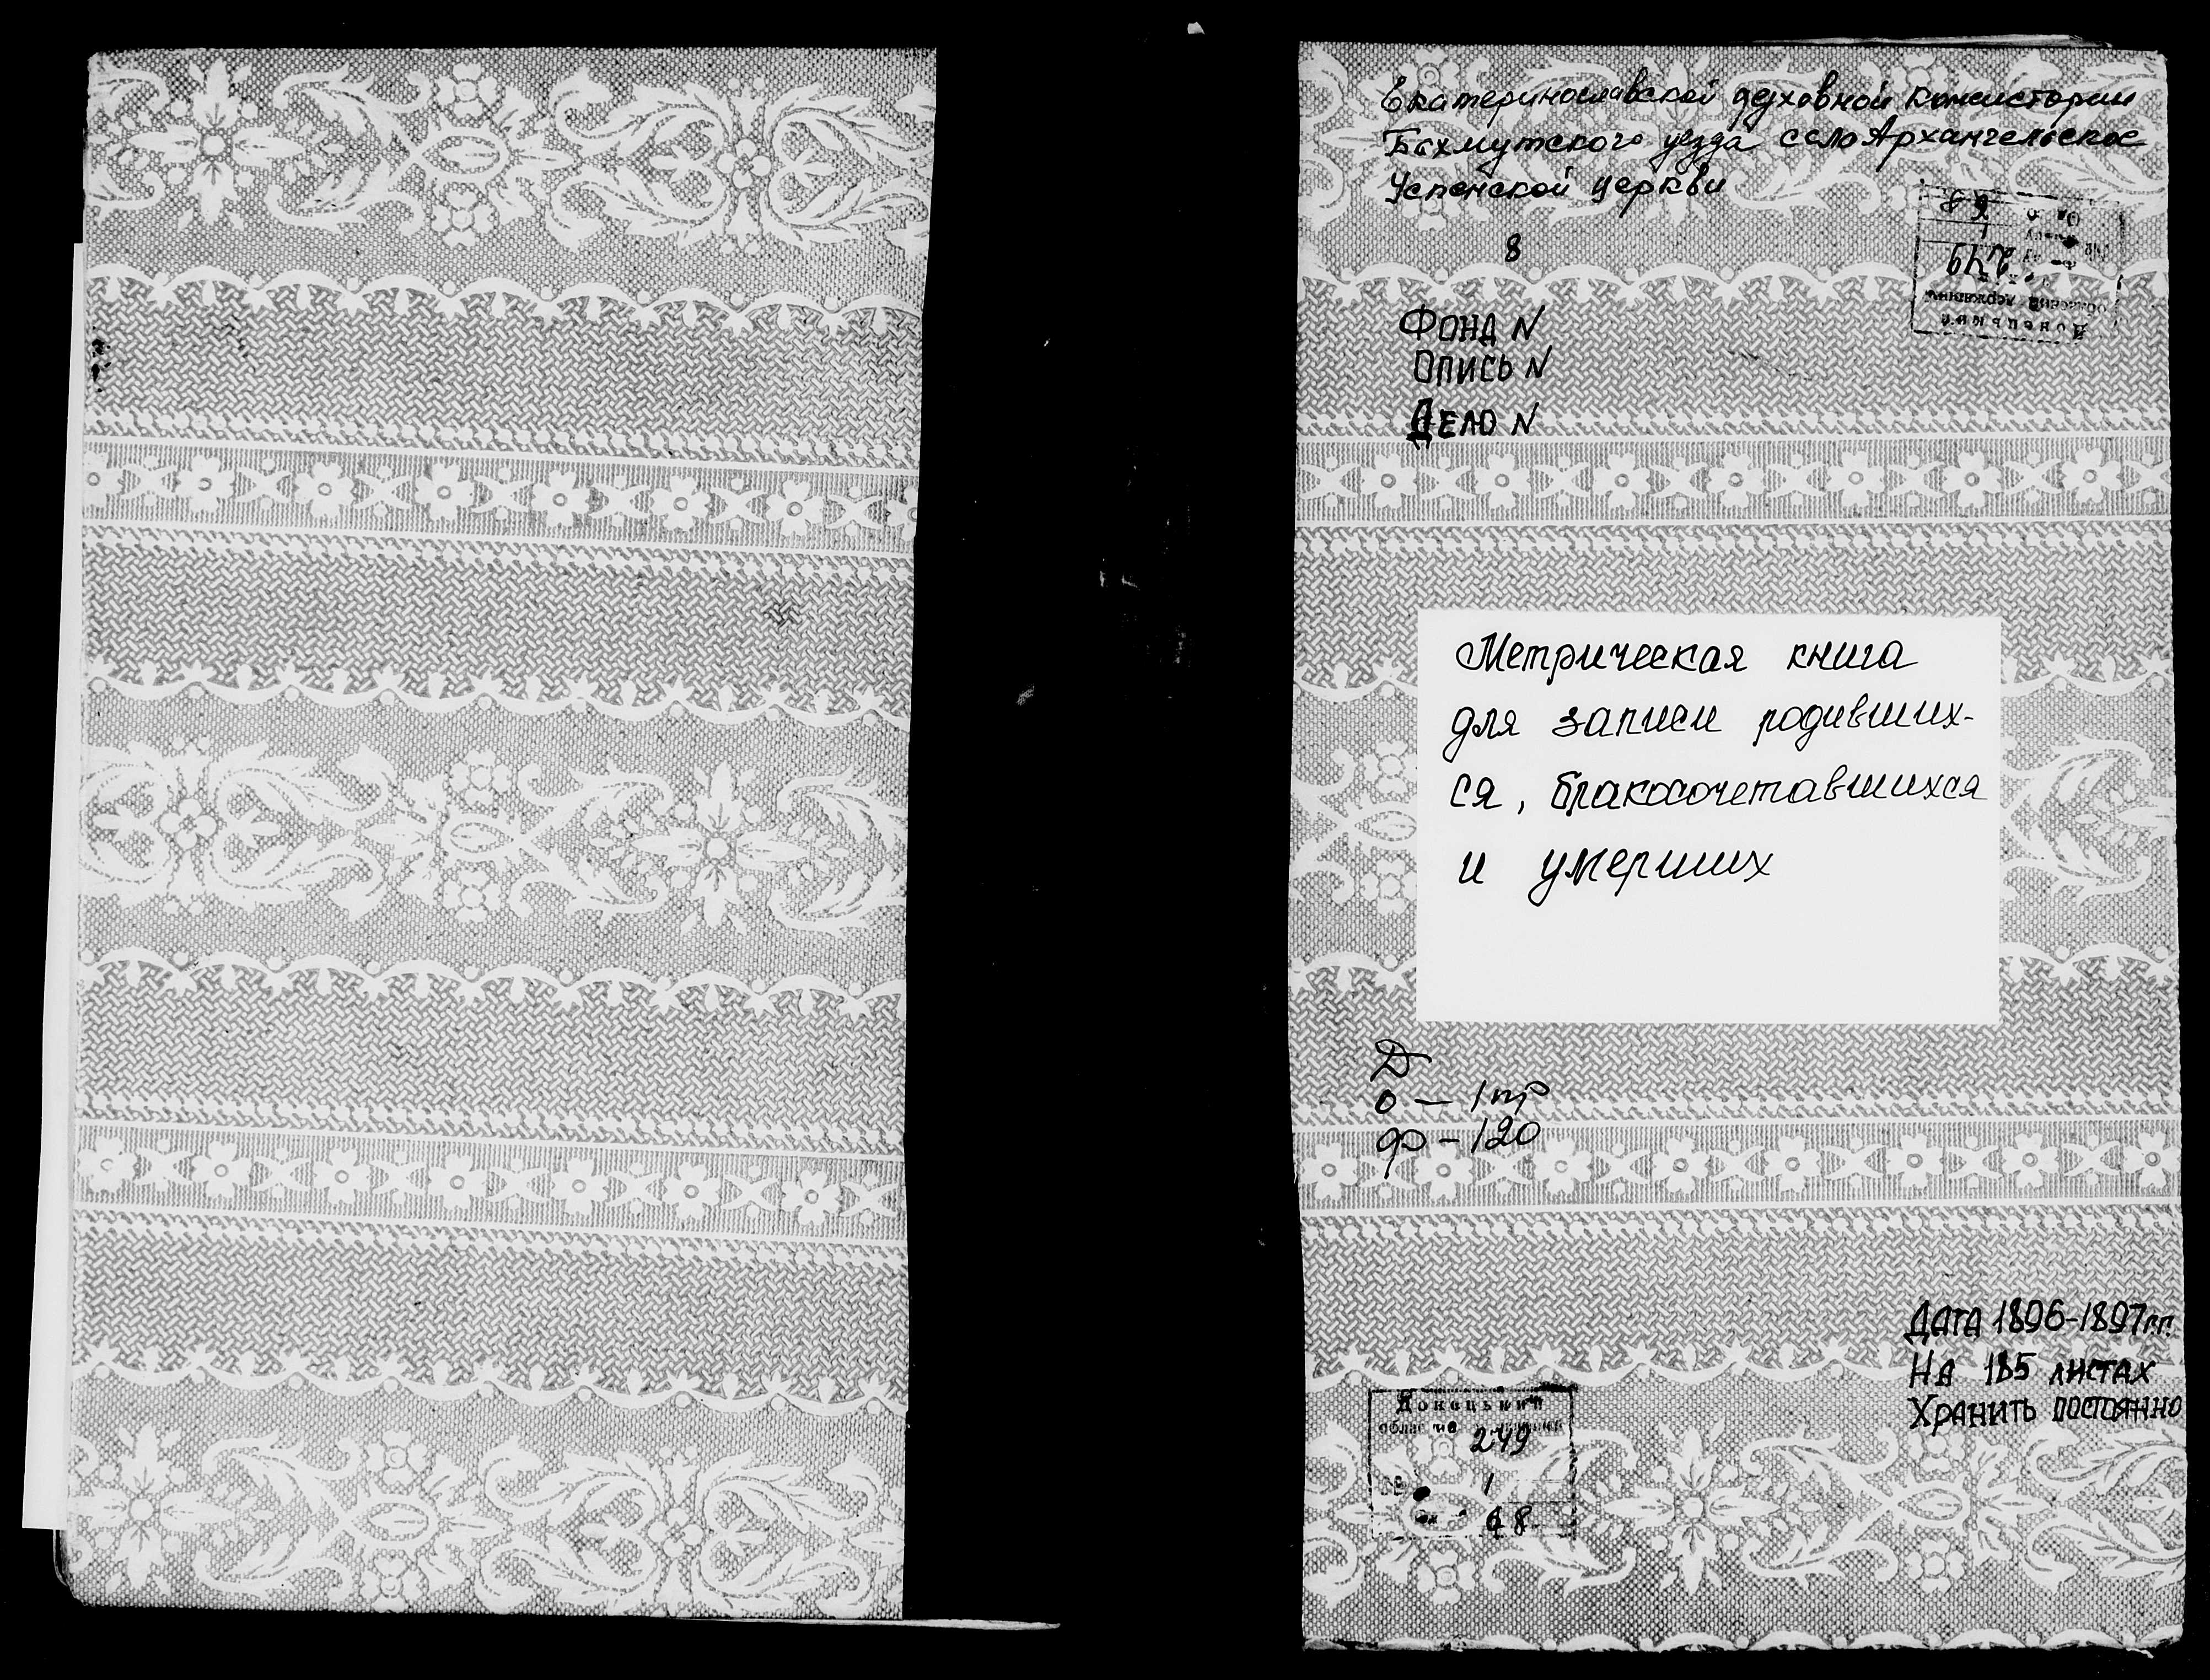 Екатеринославской духовной консистории
Бахмутского уезда село Архангельское
Успенской церкви
8
249
Донецький
Фонд №
Опись №
Дело №
Метрическая книга
для записи родивших-
ся, бракосочетавшихся
и умерших
Д
о — 1 пр
ф — 120
Дата 1896-1897 г.г.
На 185 листах
Хранить постоянно
Донецький
249
1
68